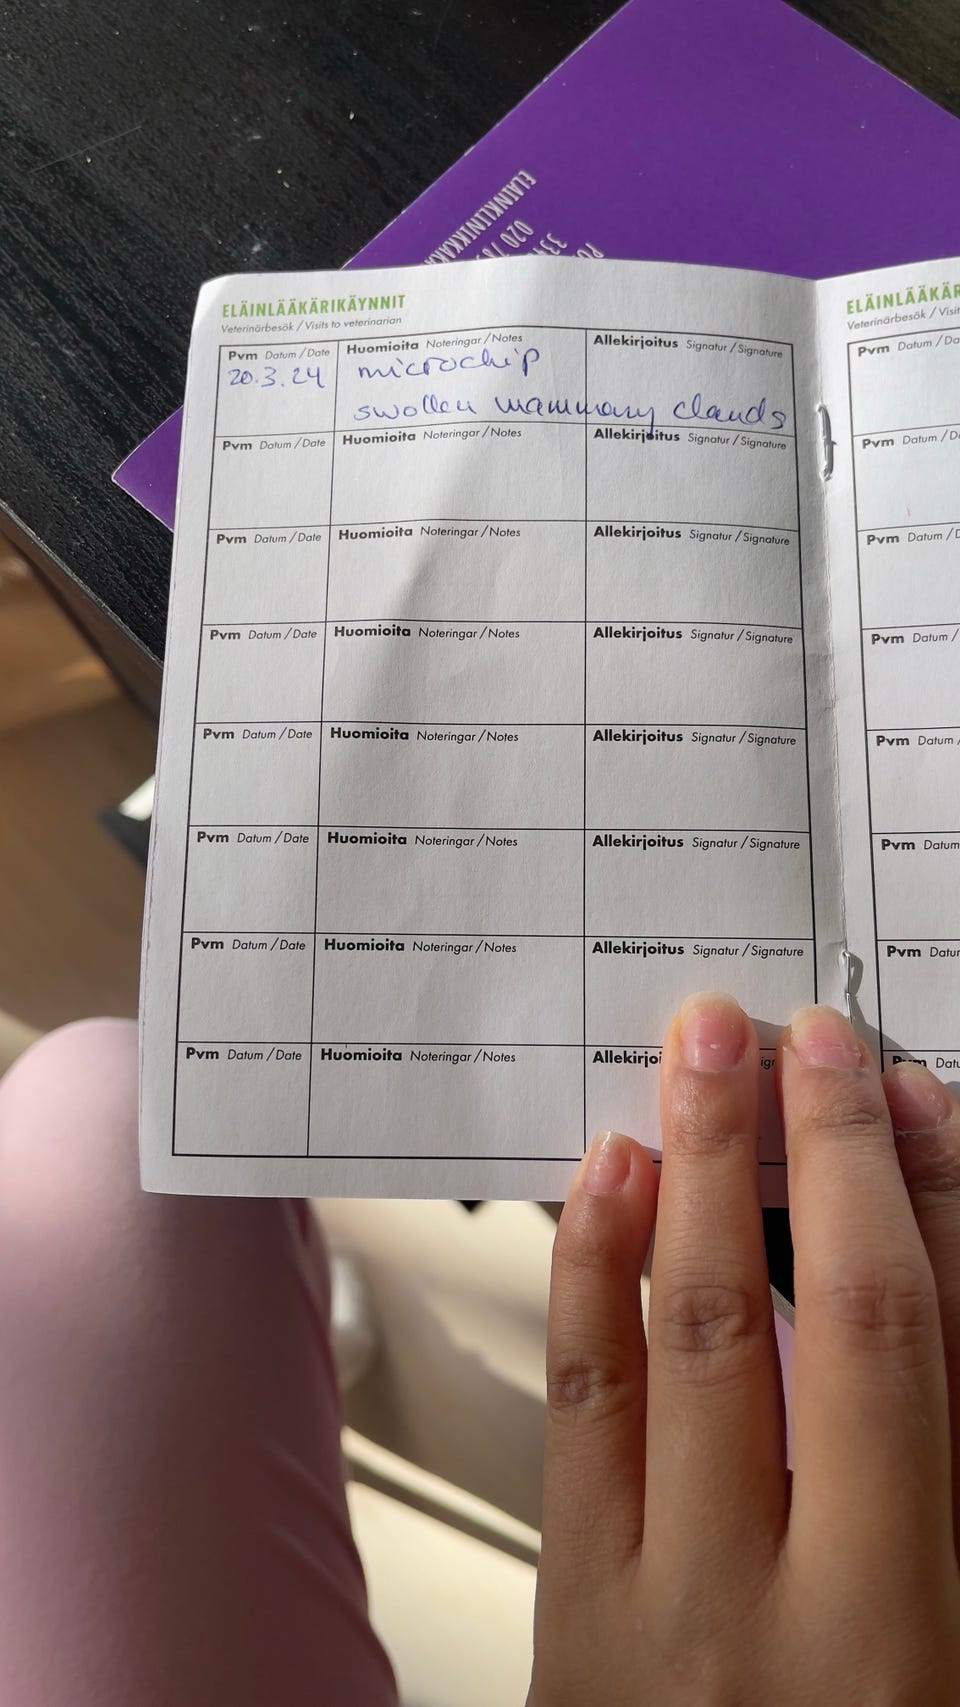 ELÄINKLINIKKAK
020 7
33
PO
ELÄINLÄÄKÄRIKÄYNNIT
Veterinärbesök / Visits to veterinarian
Pvm Datum / Date Huomioita Noteringar / Notes Allekirjoitus Signatur / Signature
20.3.24 microchip
swollen mammary clands
Pvm Datum / Date Huomioita Noteringar / Notes Allekirjoitus Signatur / Signature
Pvm Datum / Date Huomioita Noteringar / Notes Allekirjoitus Signatur / Signature
Pvm Datum / Date Huomioita Noteringar / Notes Allekirjoitus Signatur / Signature
Pvm Datum / Date Huomioita Noteringar / Notes Allekirjoitus Signatur / Signature
Pvm Datum / Date Huomioita Noteringar / Notes Allekirjoitus Signatur / Signature
Pvm Datum / Date Huomioita Noteringar / Notes Allekirjoitus Signatur / Signature
Pvm Datum / Date Huomioita Noteringar / Notes Allekirjoi
ELÄINLÄÄKÄR
Veterinärbesök / Visit
Pvm Datum / Da
Pvm Datum / Da
Pvm Datum / D
Pvm Datum /
Pvm Datum /
Pvm Datum
Pvm Datur
Pvm Datu